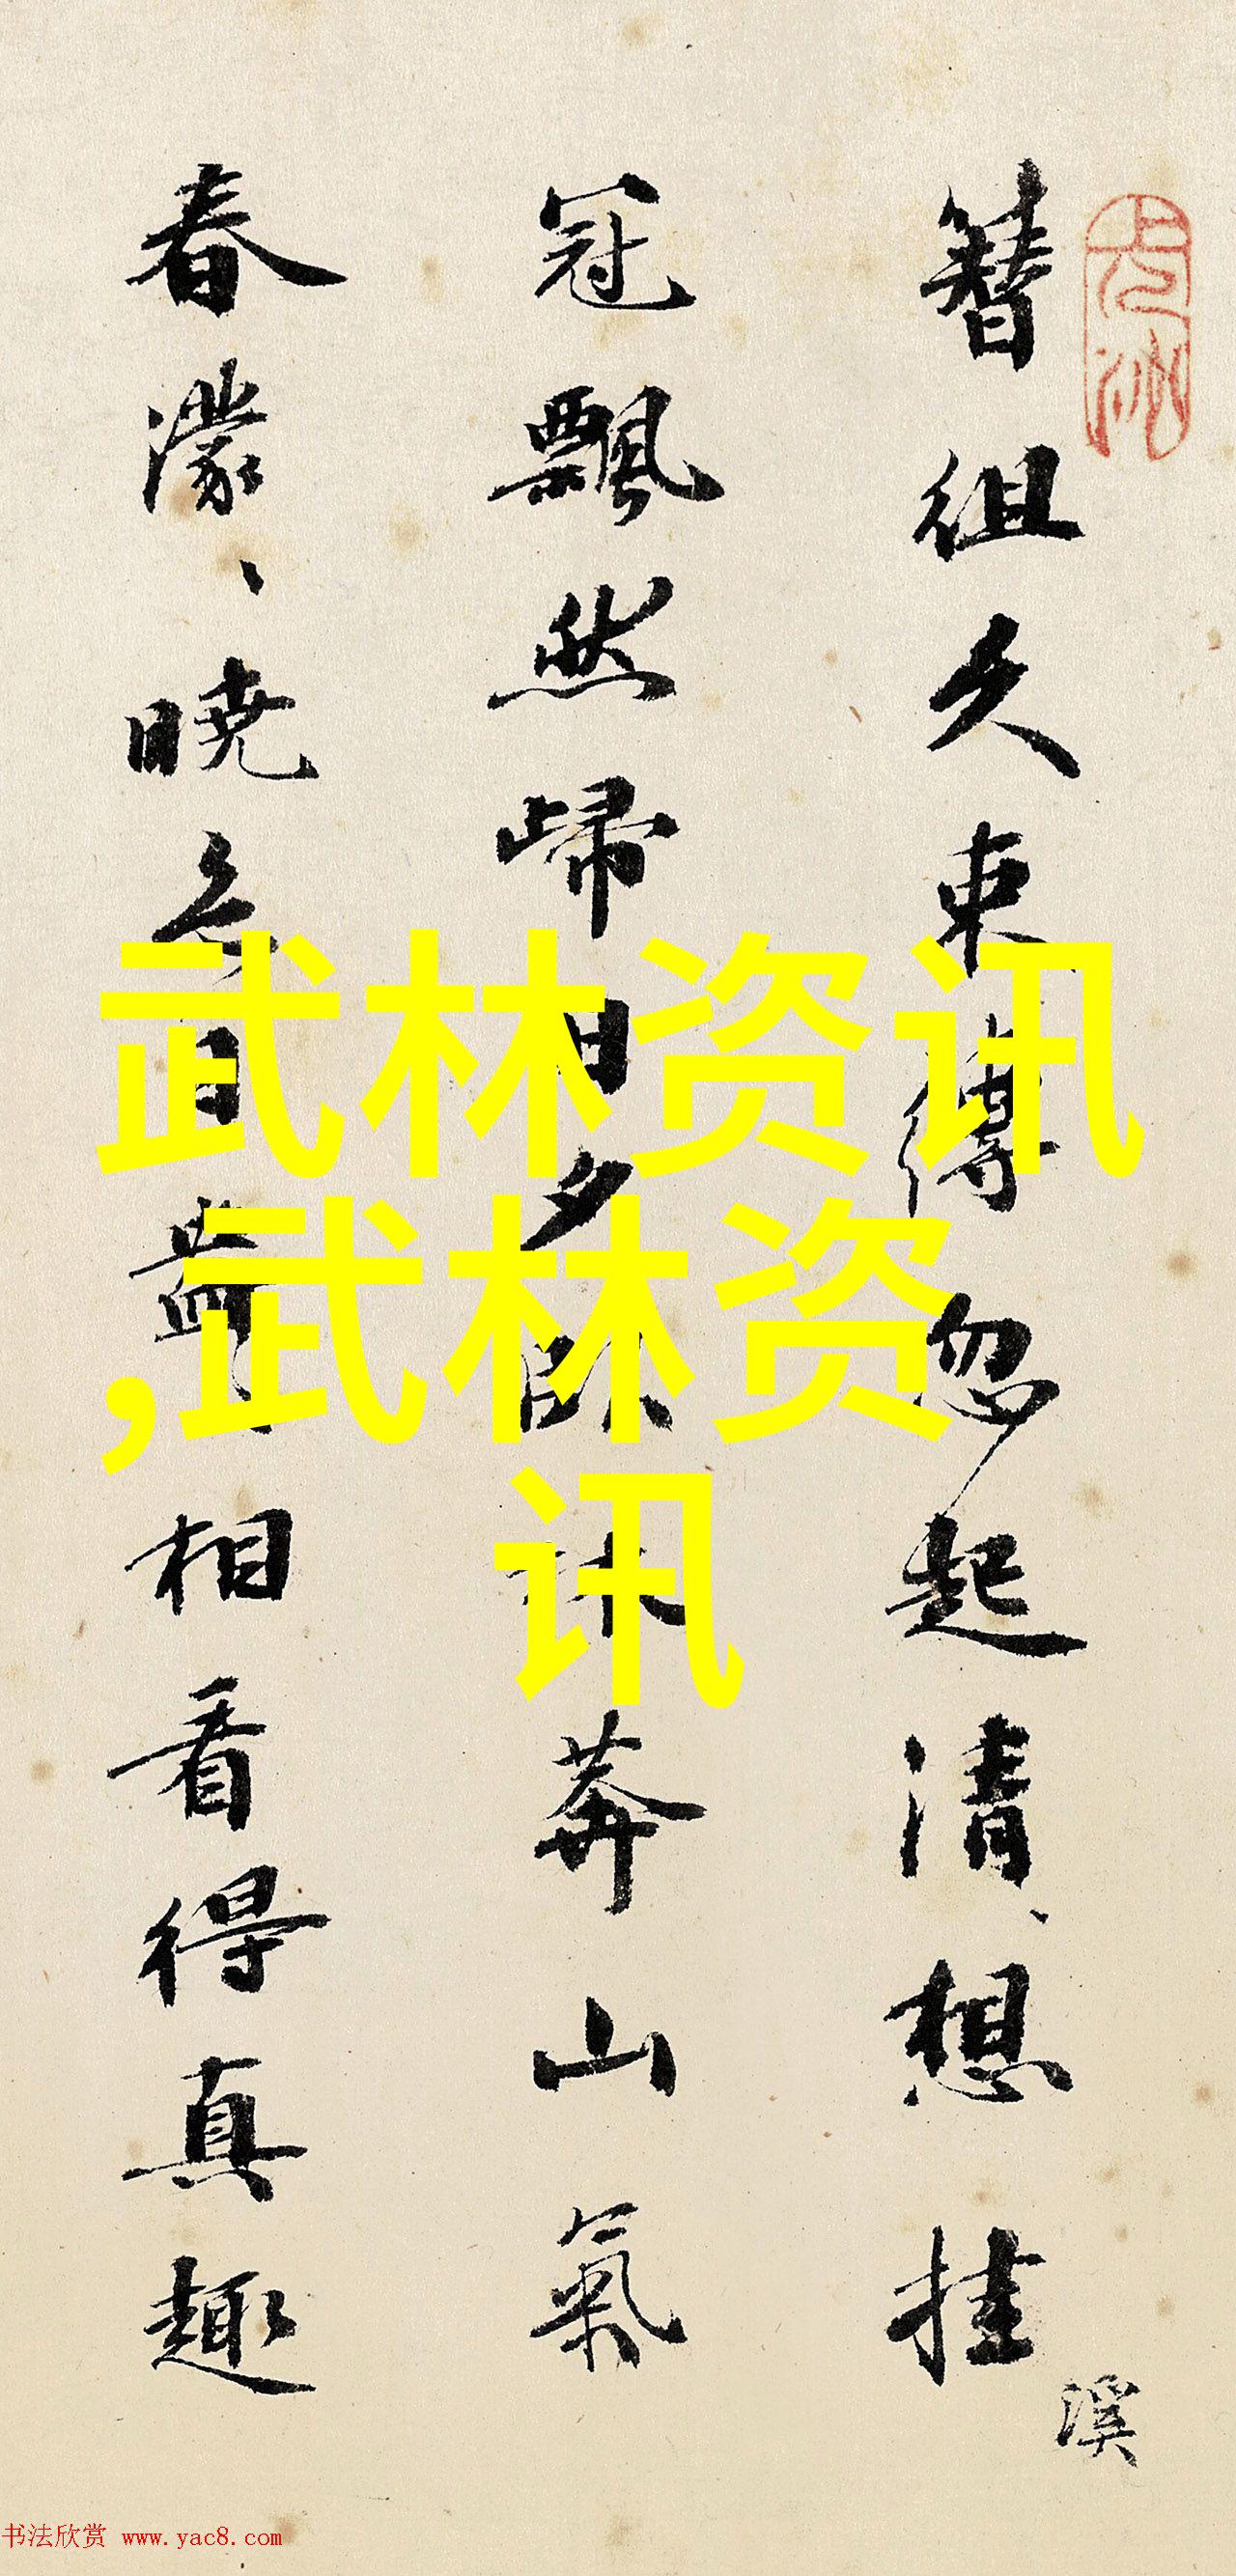 簪組久束縛忽起清想挂
溪
冠飄然歸日夕臥莽山氣
春濛、曉色日盎、相看得真趣
武林资讯
,武林资
讯
书法欣赏 www.yac8.com